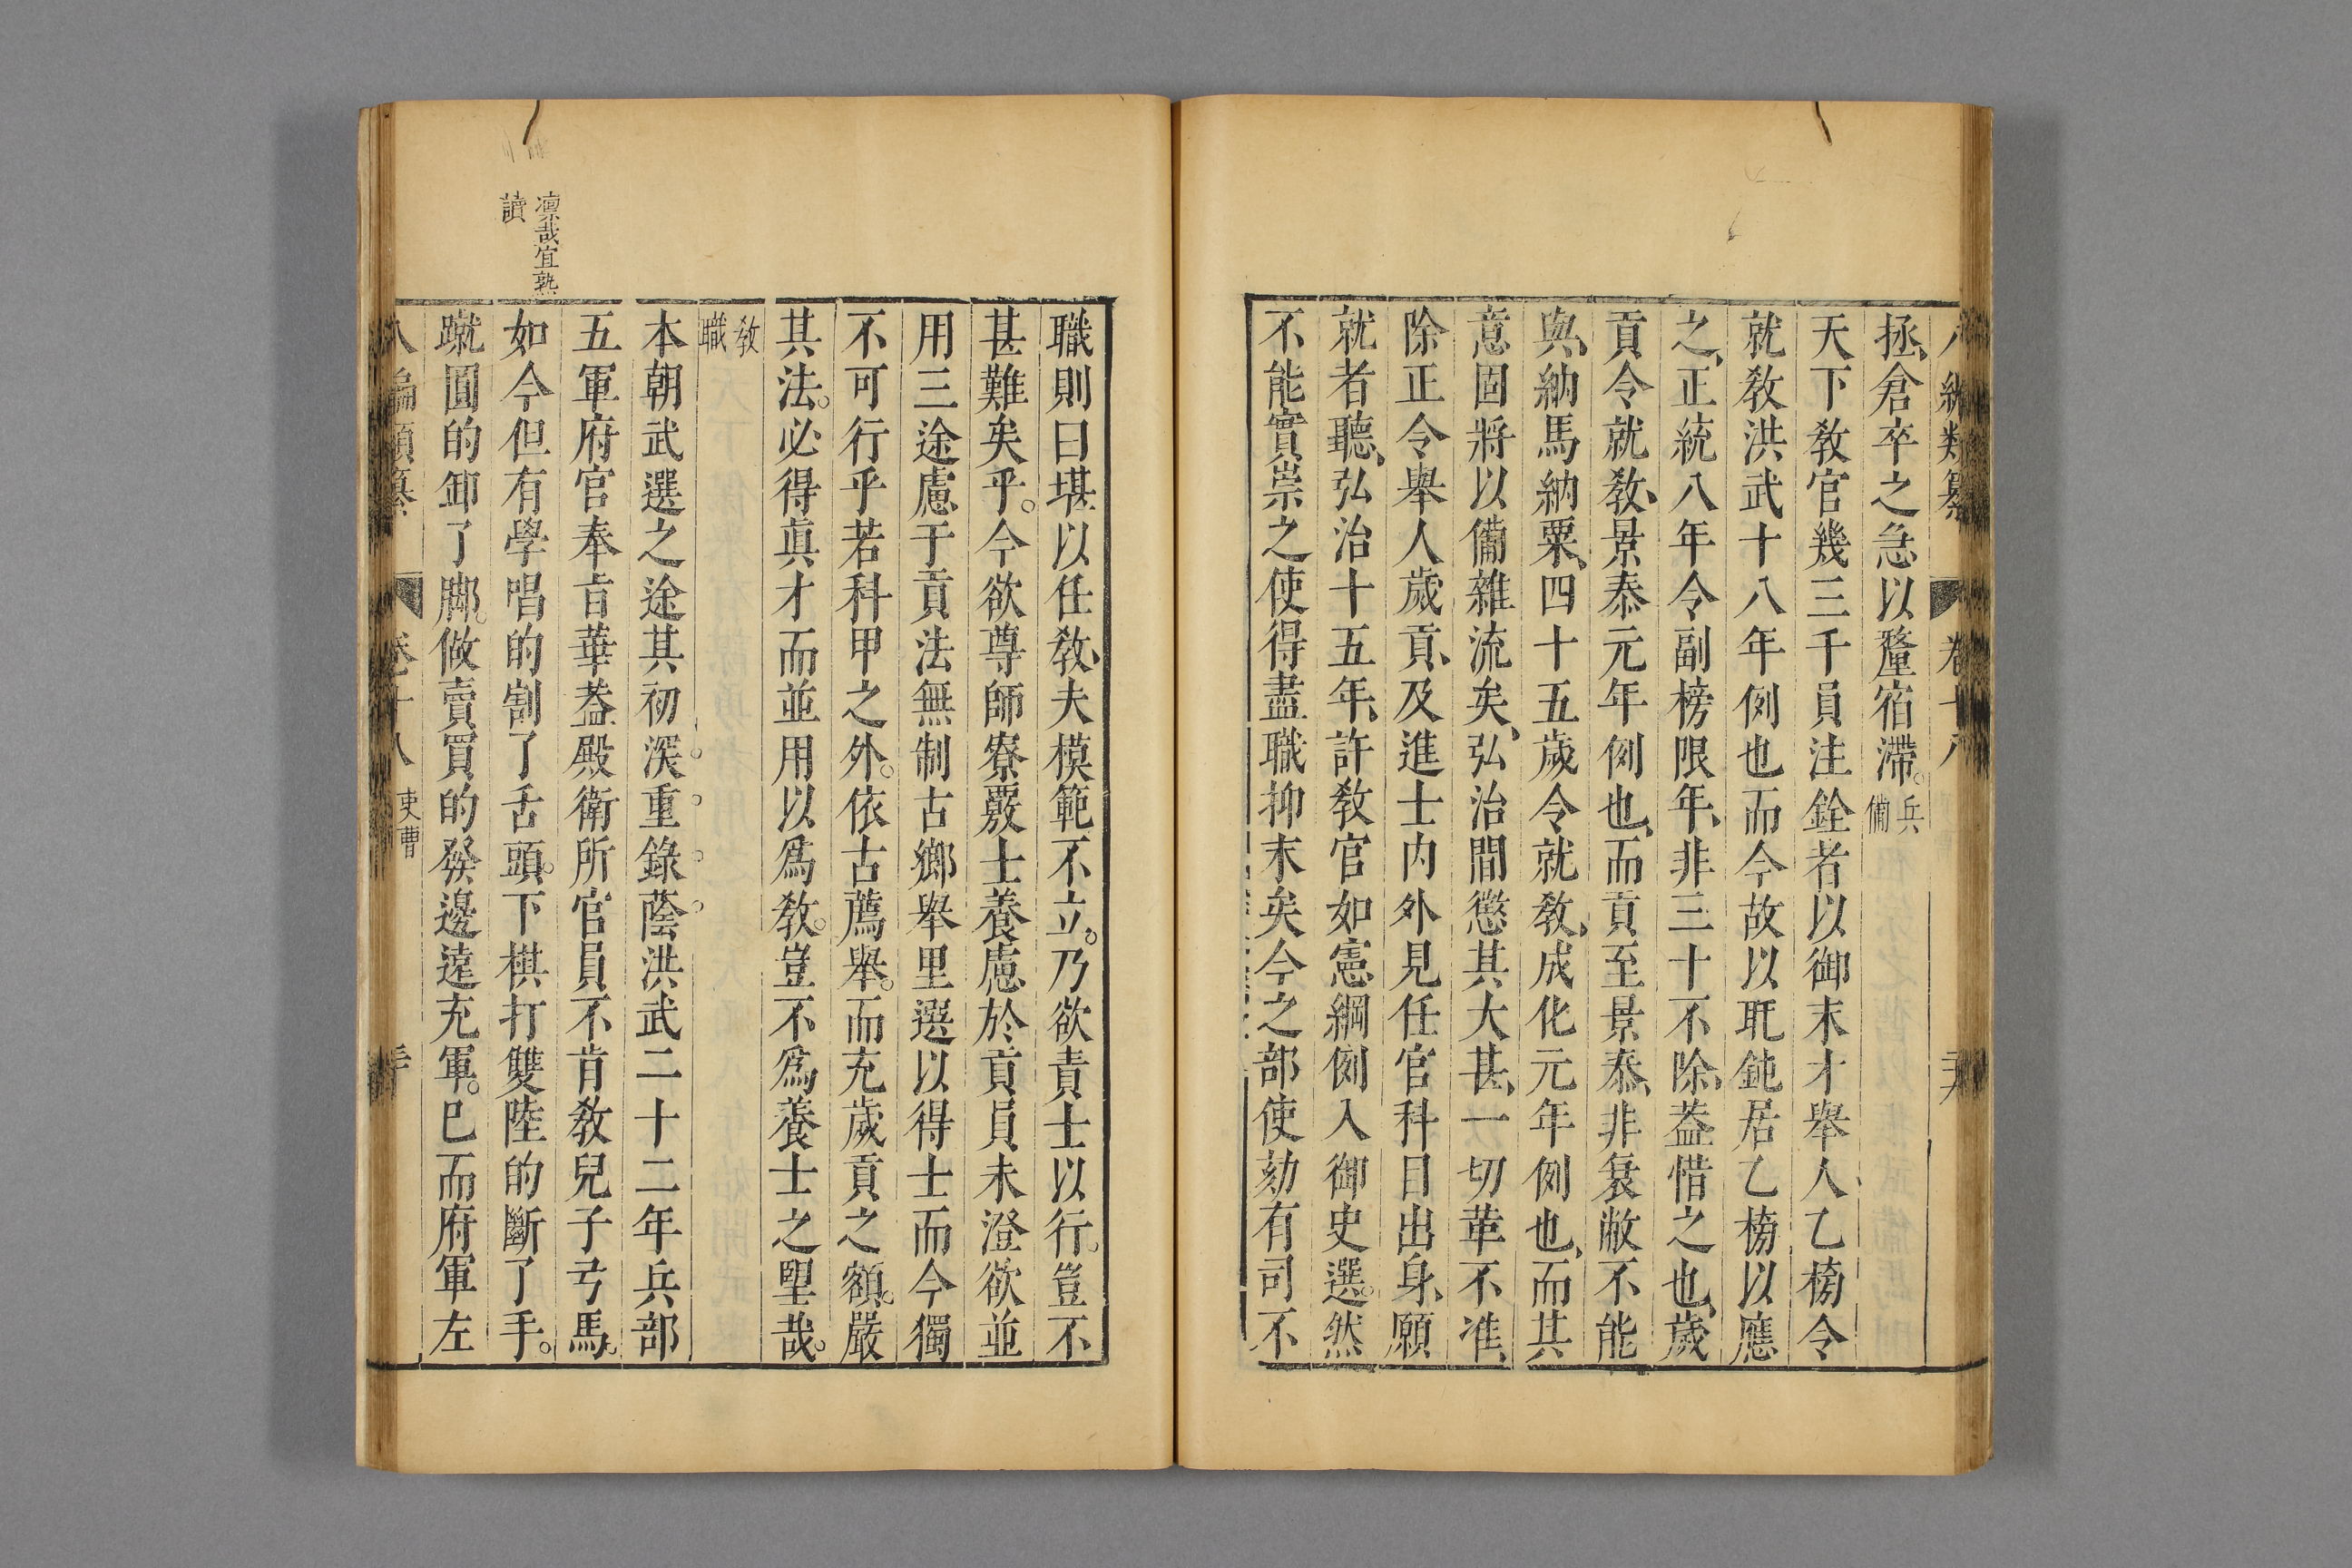 八編類纂 卷十八
拯倉卒之急以釐宿滯。兵備
天下教官幾三千員注銓者以御末才舉人乙榜令
就教洪武十八年例也而今故以毦鈍居乙榜以應
之、正統八年令副榜限年、非三十不除、葢惜之也、歲
貢令就教、景泰元年例也、而貢至景泰、非衰敝不能
與、納馬納粟、四十五歲令就教、成化元年例也、而其
意固將以備雜流矣、弘治間懲其大甚、一切革不准、
除正令舉人歲貢、及進士內外見任官科目出身、願
就者聽、弘治十五年、許教官如憲綱例入御史選。然
不能實崇之使得盡職抑末矣今之部使劾有司不
職則曰堪以任教、夫模範不立。乃欲責士以行。豈不
甚難矣乎。今欲尊師寮覈士養慮於貢員未澄欲並
用三途慮于貢法無制古鄉舉里選以得士而今獨
不可行乎若科甲之外。依古薦舉。而充歲貢之額。嚴
其法。必得眞才而並用以爲教。豈不爲養士之聖哉。
教職
本朝武選之途其初深。重。錄。蔭。洪武二十二年兵部
五軍府官奉旨華葢殿衛所官員不肯教兒子弓馬。
如今但有學唱的割了舌頭。下棋打雙陸的斷了手。
蹴圓的卸了脚。做賣買的發邊遠充軍。巳而府軍左
凛哉宜熟
讀
八編類纂 卷十八 吏曹